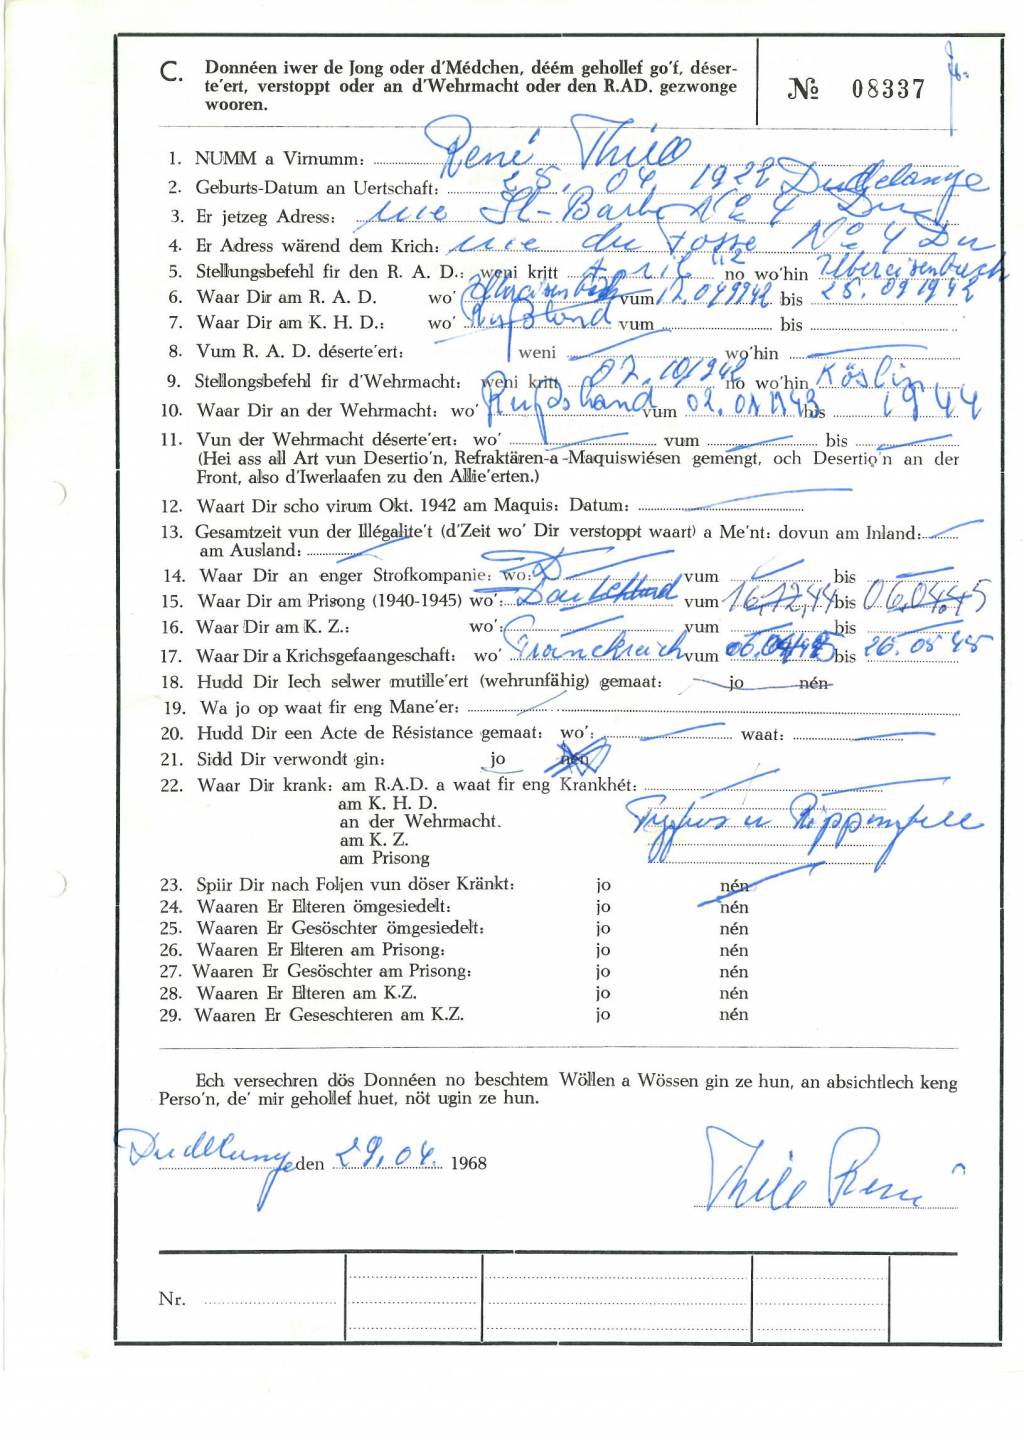 C. Donnéen iwer de Jong oder d'Médchen, déém gehollef go'f, déser-
te'ert, verstoppt oder an d'Wehrmacht oder den R.AD. gezwonge
wooren.
№ 08337
1. NUMM a Virnumm: René Thill
2. Geburts-Datum an Uertschaft: 25. 04. 1922 Dudelange
3. Er jetzeg Adress: rue St-Barbe No 4 Du
4. Er Adress wärend dem Krich: rue du Fosse No 4 Du
5. Stellungsbefehl fir den R. A. D.: weni kritt April 42 no wo'hin Ubereisenbach
6. Waar Dir am R. A. D. wo' Ubereisenbach vum 12.04 1942 bis 25. 09 1942
7. Waar Dir am K. H. D.: wo' Rußland vum bis
8. Vum R. A. D. déserte'ert: weni wo'hin
9. Stellongsbefehl fir d'Wehrmacht: weni kritt 07.10 1942 no wo'hin Köslin
10. Waar Dir an der Wehrmacht: wo' Russland vum 02. 01 1943 bis 1944
11. Vun der Wehrmacht déserte'ert: wo' vum bis
(Hei ass all Art vun Desertio'n, Refraktären-a-Maquiswiésen gemengt, och Desertio'n an der
Front, also d'Iwerlaafen zu den Allie'erten.)
12. Waart Dir scho virum Okt. 1942 am Maquis: Datum:
13. Gesamtzeit vun der Illégalite't (d'Zeit wo' Dir verstoppt waart) a Me'nt: dovun am Inland:
am Ausland:
14. Waar Dir an enger Strofkompanie: wo: vum bis
15. Waar Dir am Prisong (1940-1945) wo': Deutschland vum 16.12.44 bis 06.04.45
16. Waar Dir am K. Z.: wo': vum bis
17. Waar Dir a Krichsgefaangeschaft: wo' Franckreich vum 06.04 45 bis 26.05 45
18. Hudd Dir Iech selwer mutille'ert (wehrunfähig) gemaat: jo nén
19. Wa jo op waat fir eng Mane'er:
20. Hudd Dir een Acte de Résistance gemaat: wo': waat:
21. Sidd Dir verwondt gin: jo nén
22. Waar Dir krank: am R.A.D. a waat fir eng Krankhét:
am K. H. D.
an der Wehrmacht. Typhus u Rippenfell
am K. Z.
am Prisong
23. Spiir Dir nach Foljen vun döser Kränkt: jo nén
24. Waaren Er Elteren ömgesiedelt: jo nén
25. Waaren Er Gesöschter ömgesiedelt: jo nén
26. Waaren Er Elteren am Prisong: jo nén
27. Waaren Er Gesöschter am Prisong: jo nén
28. Waaren Er Elteren am K.Z. jo nén
29. Waaren Er Geseschteren am K.Z. jo nén
Ech versechren dös Donnéen no beschtem Wöllen a Wössen gin ze hun, an absichtlech keng
Perso'n, de' mir gehollef huet, nöt ugin ze hun.
Dudelange den 29.04. 1968
Thill René
Nr.